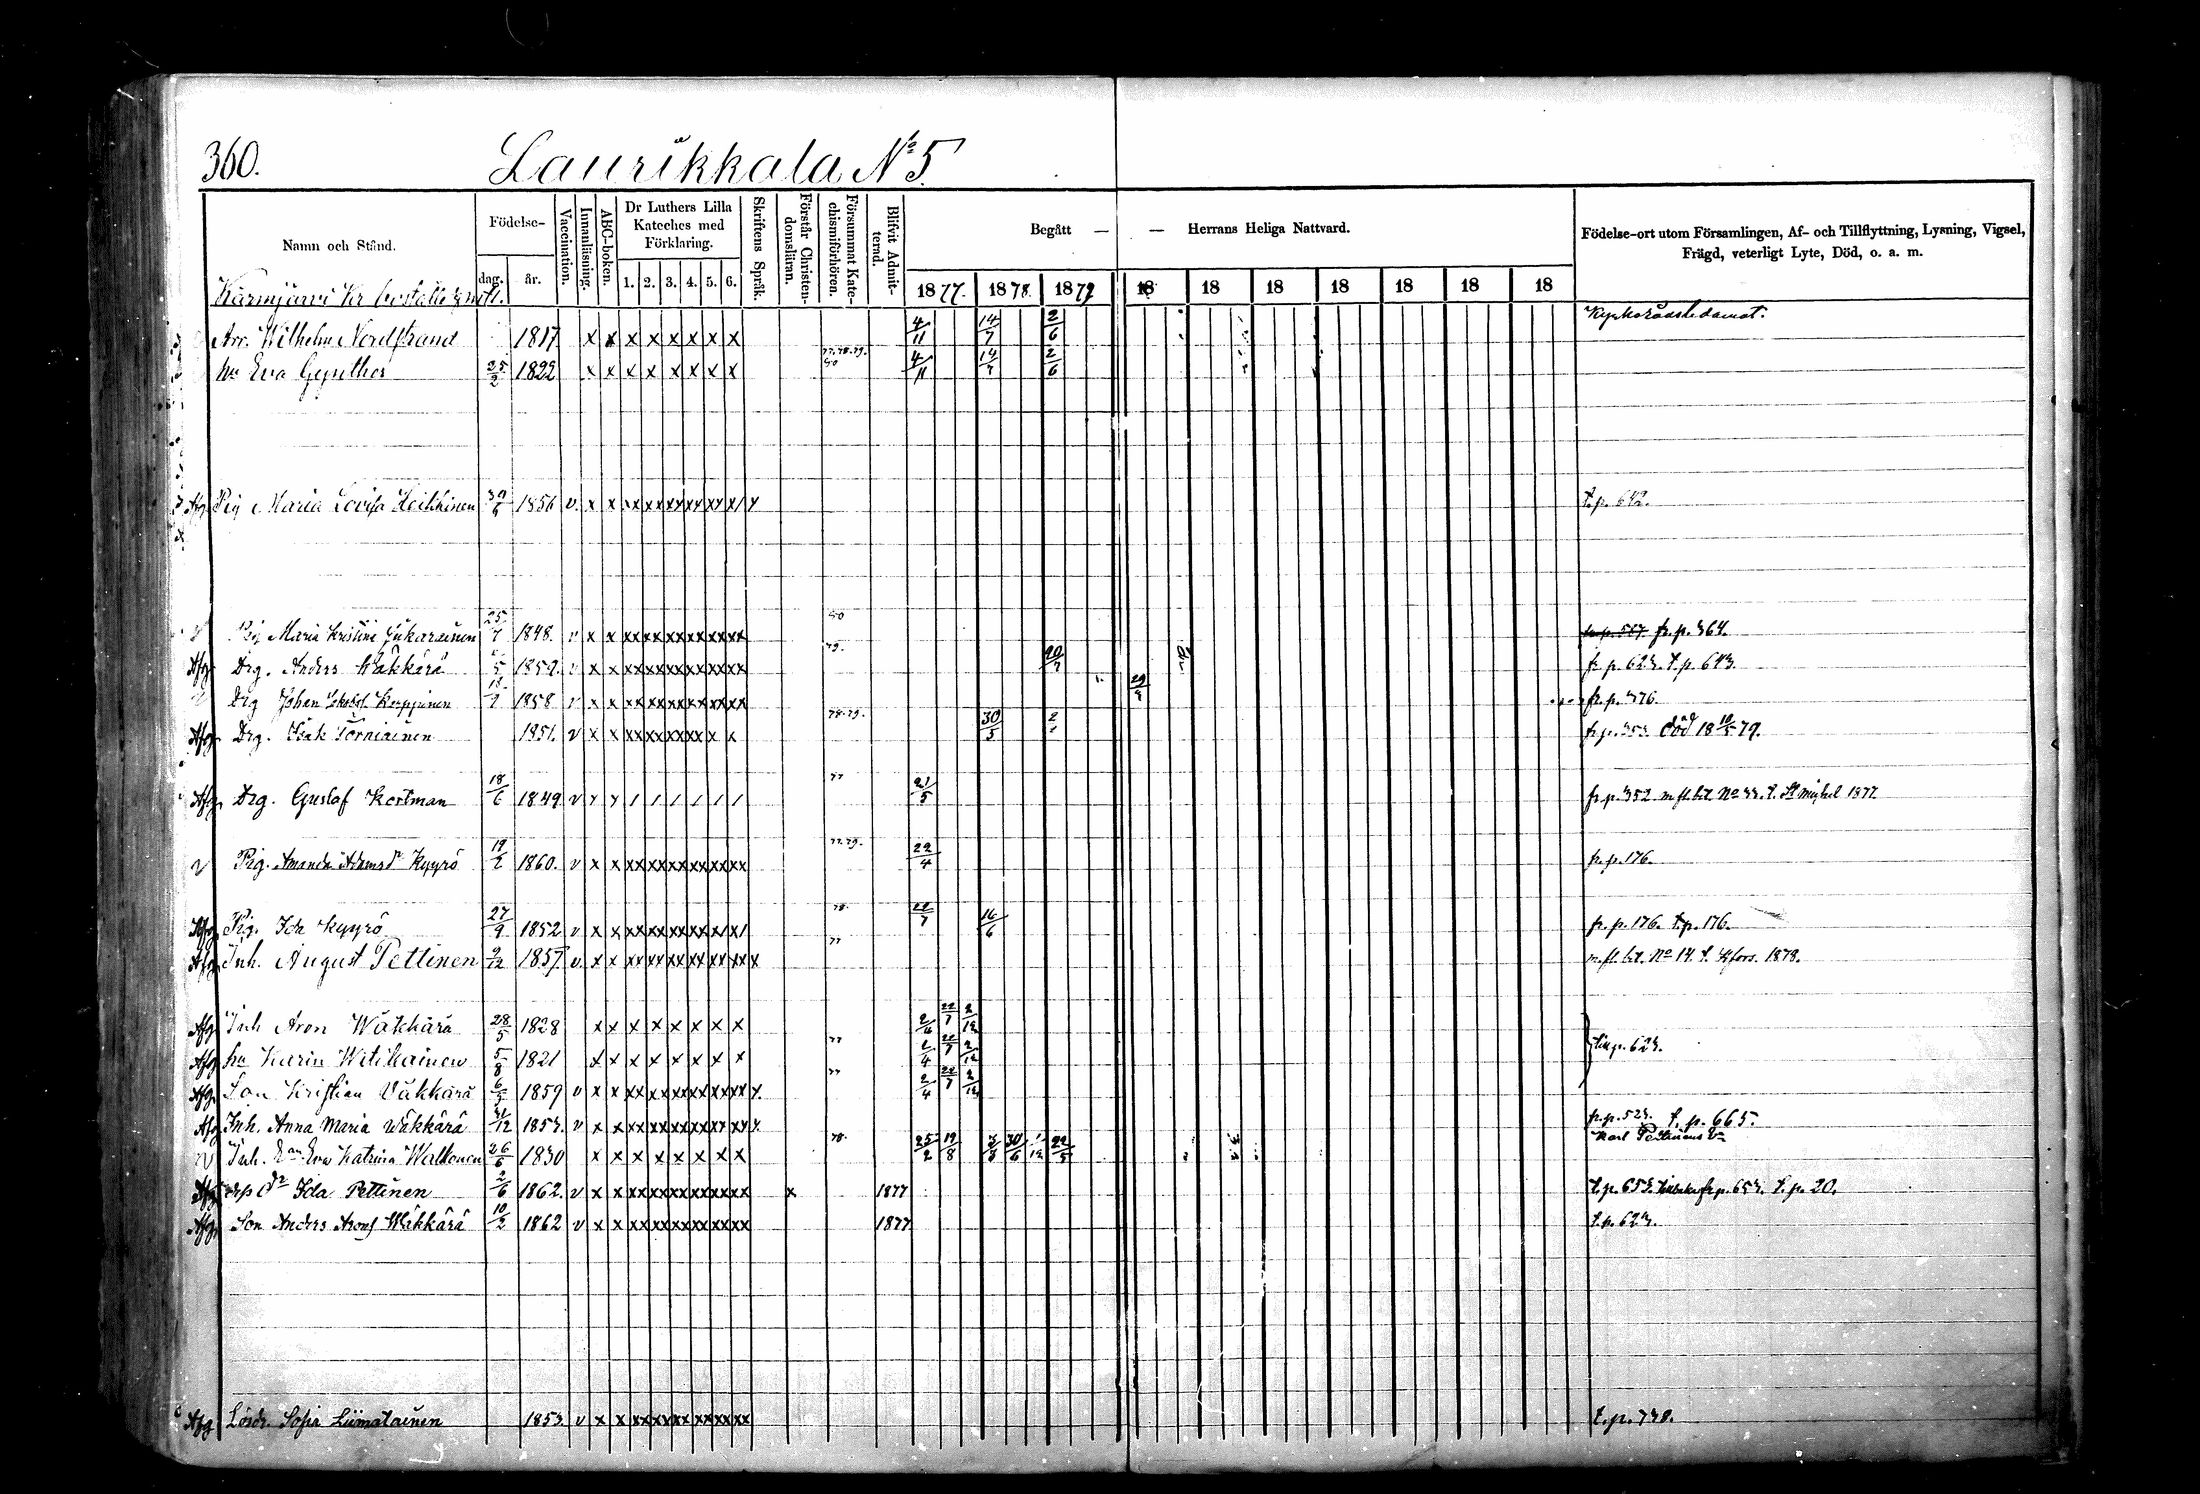 360. Laurikkala No 5.
Namn och Stånd. Födelse- dag. år. Vaccination. Innanläsning. ABC-boken. Dr Luthers Lilla Kateches med Förklaring. 1. 2. 3. 4. 5. 6. Skriftens Språk. Förstår Christendomsläran. Försummat Katechismiförhören. Blifvit Admitterad. Begått — — Herrans Heliga Nattvard. Födelse-ort utom Församlingen, Af- och Tillflyttning, Lysning, Vigsel, Frägd, veterligt Lyte, Död, o. a. m.
1877. 1878. 1879 18 18 18 18 18 18 18
Kärmjärvi Kr boställe
Arr. Wilhelm Nordstrand 1817 x x x x x x x x 4/11 14/7 2/6
hu Eva Gynther 25/2 1822 x x x x x x x x 77.78.79. 80 4/11 14/7 2/6
Afg Pig Maria Lovisa Heikkinen 1856 v. x x xx xx xx xx xx x/ t.p. 642.
Pig Maria Kristina Jukarainen 25/7 1848. v x x xx xx xx xx xx xx 80 fr. p. 364.
Afg Drg. Anders Wäkkärä 1859. v x x xx xx xx xx xx xx 79. 20/7 fr p. 623. t. p. 643.
Drg Johan Korppinen 18/9 1858 v x x xx xx xx xx xx xx 29/9 fr. p. 376.
Afg Drg. Isak Torniainen 1851. v x x xx xx xx xx x x 78.79. 30/5 fr p. 353. död 18 10/5 79.
Afg Drg. Gustaf Kortman 18/6 1849 v / / / / / / 77 21/5 fr. p. 352 m. fl. bt. No 33. t. St Michel 1877.
v Pig. Amanda Adamsdr Kyyrö 19/2 1860. v x x xx xx xx xx xx xx 77.79. 22/4 fr. p. 176.
Afg Pig. Ida Kyyrö 27/9 1852 v x x xx xx xx xx x/ x/ 78. 22/7 16/6 fr. p. 176. t. p. 176.
Afg Inh. August Pettinen 2/12 1857 v. x x xx xx xx xx xx xx x 77 m. fl. bt. No 14. t. Hfors. 1878.
Afg Inh Aron Wäkkärä 28/5 1828 x x x x x x x x 2/4 22/7 2/12
Afg hu Karin Witikainen 5/8 1821 x x x x x x x x 77 2/4 22/7 2/12 p. 623.
Afg. Son Kristian Väkkärä 6/5 1859 v x x xx xx xx xx xx xx 77 2/4 22/7 2/12
Afg Inh. Anna Maria Wäkkärä 1853. v x x xx xx xx xx xx xx fr. p. 523. t. p. 665.
v Inh. Eva Katrina Walkonen 26/6 1830 x x x x x x x x 78. 25/2 19/8 30/6 22/5 Karl Pettinens
Afg dr Ida Pettinen 2/6 1862. v x x xx xx xx xx xx xx x 1877 t. p. 653. fr p. 653. t. p. 20.
Afg. Son Anders Arons Wäkkärä 10/2 1862 v x x xx xx xx xx xx xx 1877 t. p. 623.
Afg Lösdr. Sofia Liimatainen 1853. v x x xx xx xx xx xx xx t. p. 730.